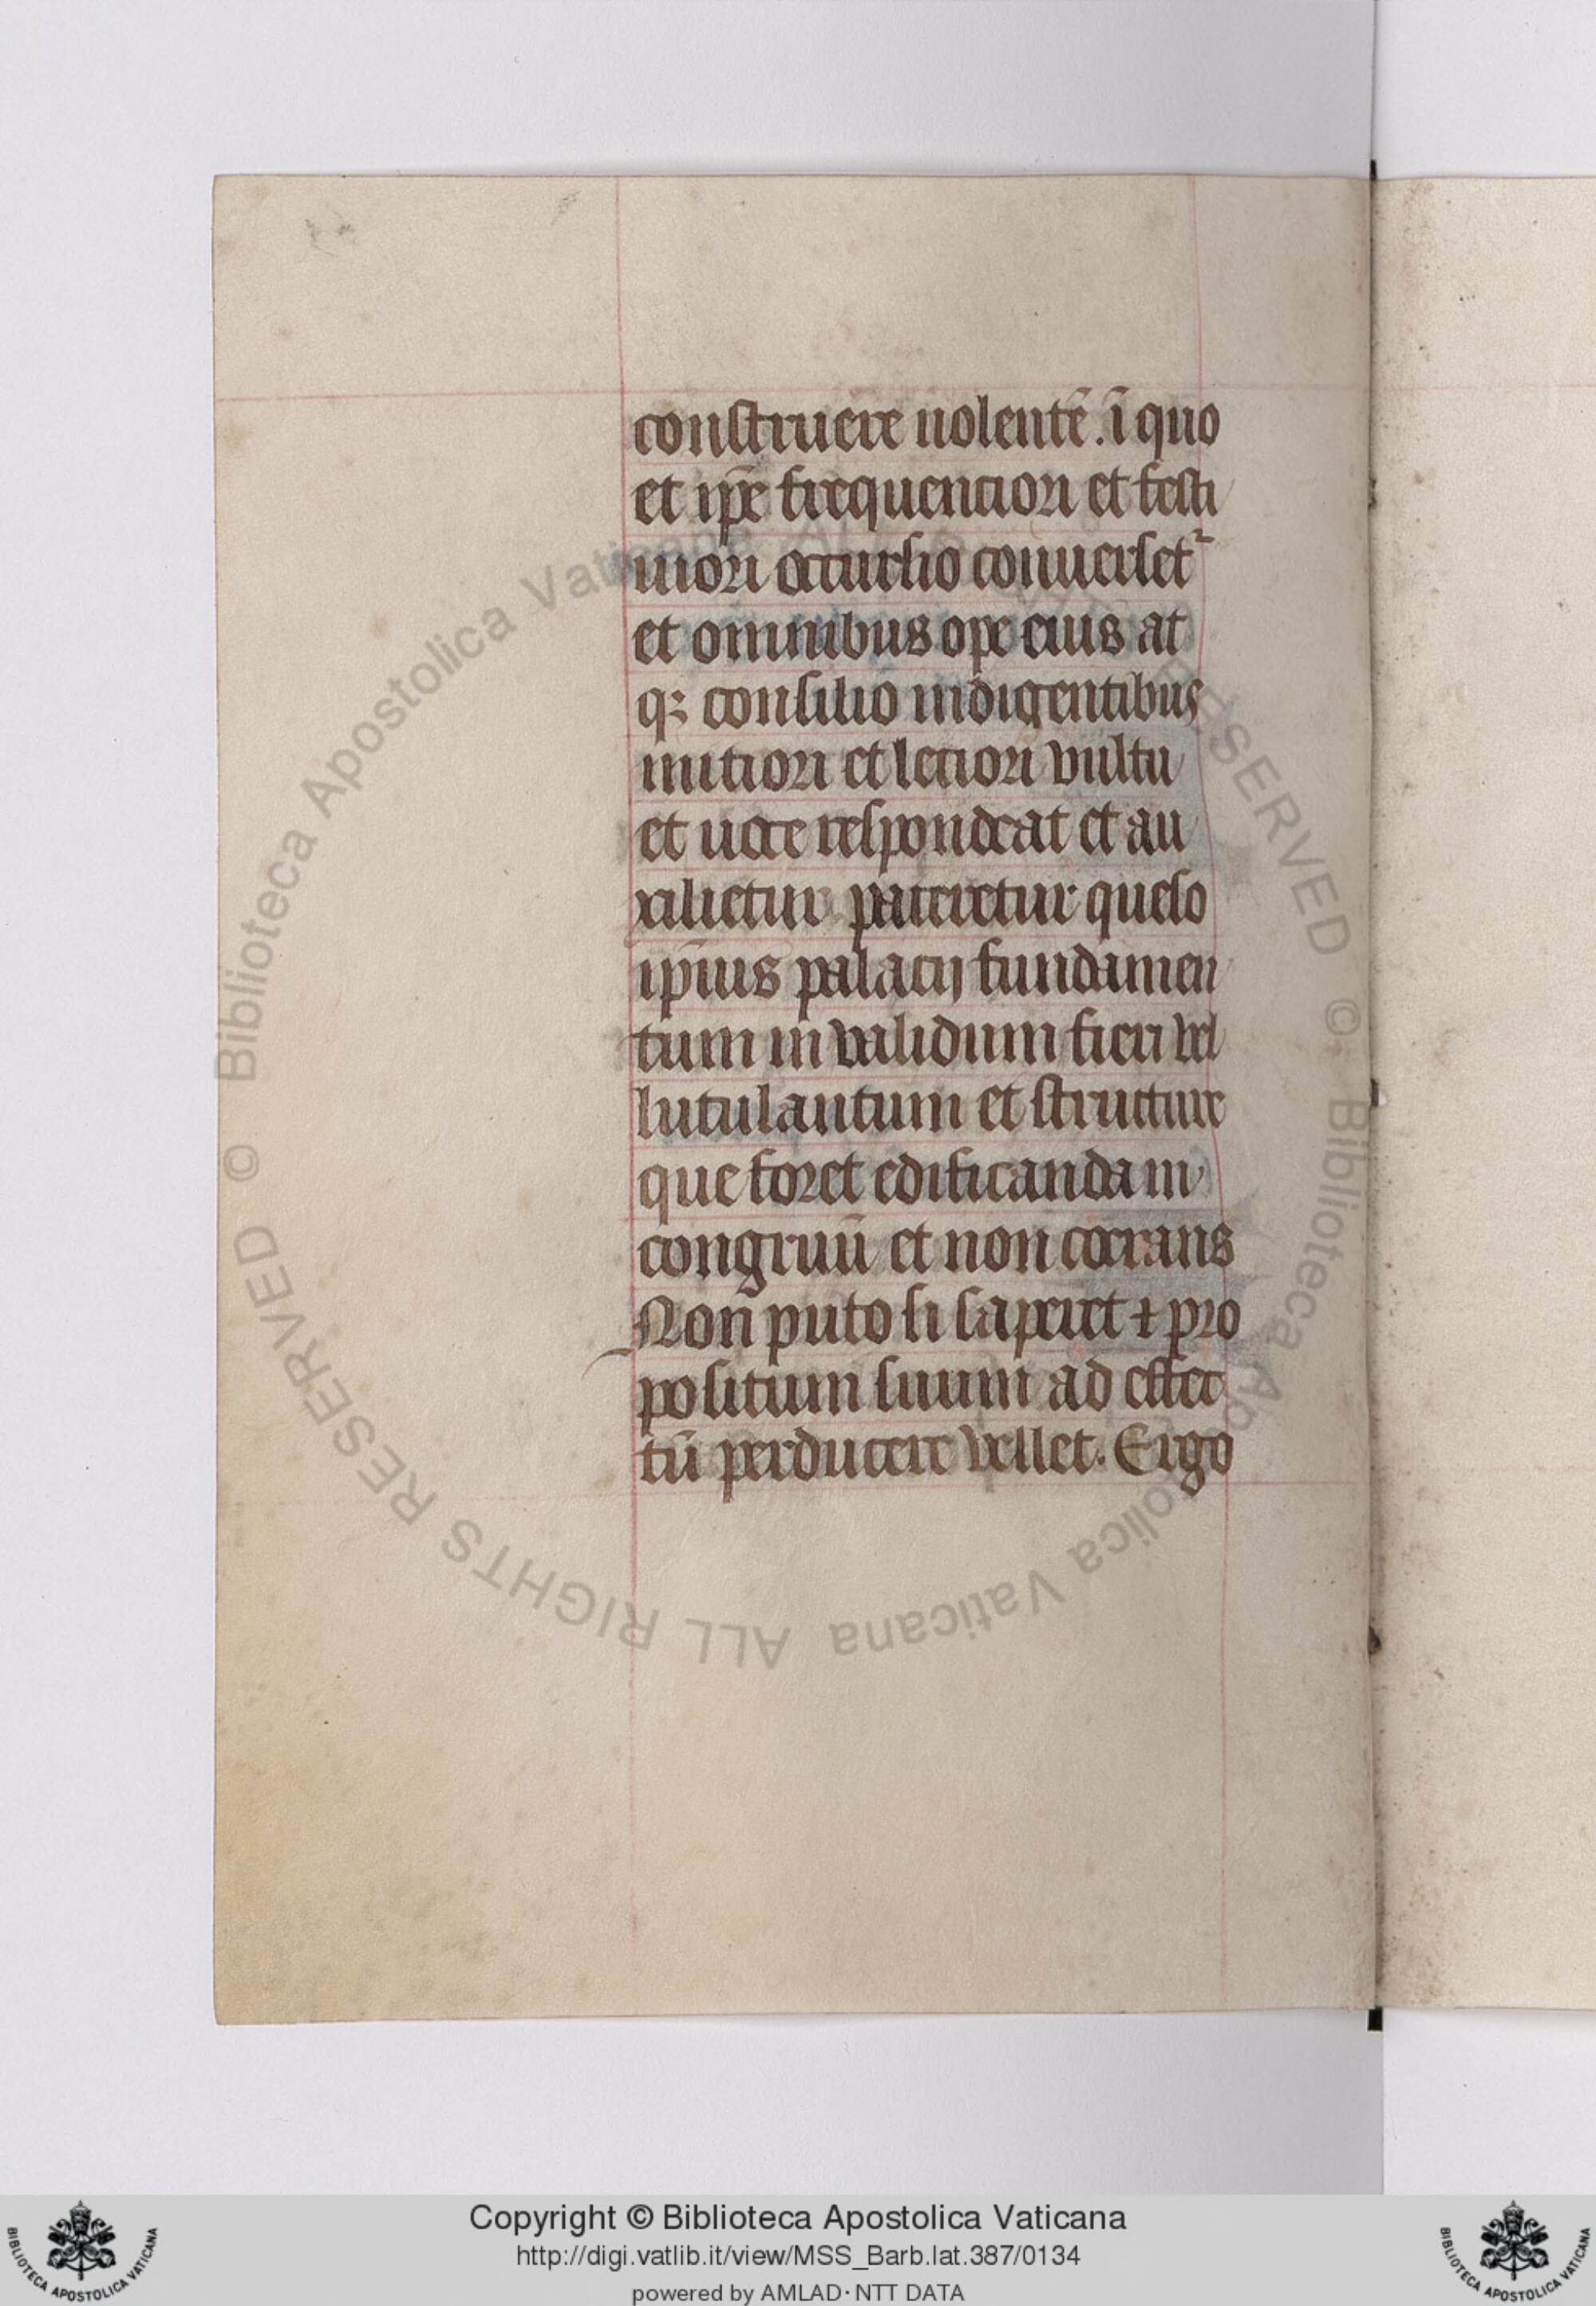 construere uolentē. ī quo
et ip̄e frequentiori et festi
uiori occursio conuerset᷑
et omnibus ope eius at
qꝫ consilio indigentibus
mitiori et letiori vultu
et uoce respondeat et au
xilietur pateretur queso
ip̄ius palacij fundamen
tum in validum fieri vel
lutulantum et structure
que foret edificanda in
congruū et non coerans
Non puto si saperet ⁊ pro
positum suum ad effec
tū perducere vellet. Ergo
© Biblioteca Apostolica Vaticana ALL RIGHTS RESERVED
© Biblioteca Apostolica Vaticana ALL RIGHTS RESERVED
Copyright © Biblioteca Apostolica Vaticana
http://digi.vatlib.it/view/MSS_Barb.lat.387/0134
powered by AMLAD · NTT DATA
BIBLIOTECA APOSTOLICA VATICANA
BIBLIOTECA APOSTOLICA VATICANA